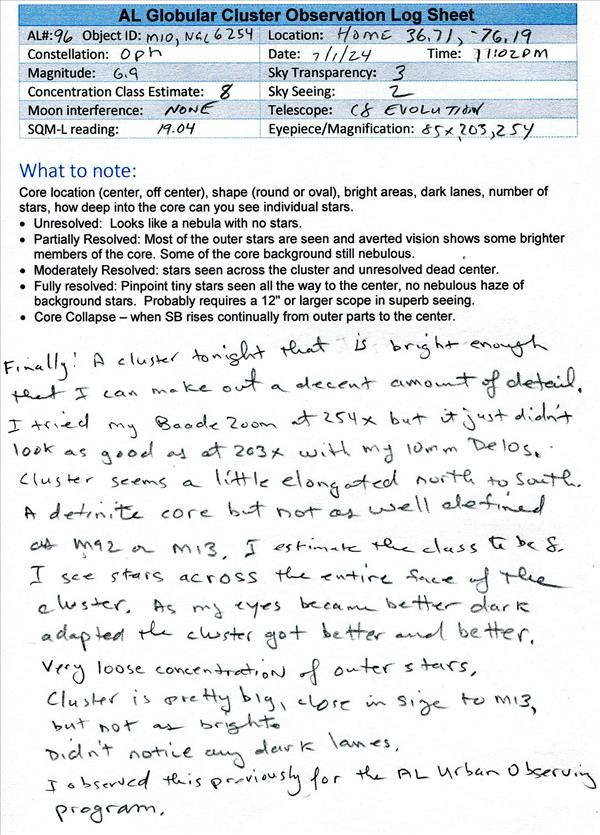 AL Globular Cluster Observation Log Sheet
AL#: 96 Object ID: M10, NGC 6254 Location: Home 36.71, -76.19
Constellation: Oph Date: 7/1/24 Time: 11:02PM
Magnitude: 6.9 Sky Transparency: 3
Concentration Class Estimate: 8 Sky Seeing: 2
Moon interference: NONE Telescope: C8 EVOLUTION
SQM-L reading: 19.04 Eyepiece/Magnification: 85x, 203, 254
What to note:
Core location (center, off center), shape (round or oval), bright areas, dark lanes, number of
stars, how deep into the core can you see individual stars.
• Unresolved: Looks like a nebula with no stars.
• Partially Resolved: Most of the outer stars are seen and averted vision shows some brighter
members of the core. Some of the core background still nebulous.
• Moderately Resolved: stars seen across the cluster and unresolved dead center.
• Fully resolved: Pinpoint tiny stars seen all the way to the center, no nebulous haze of
background stars. Probably requires a 12" or larger scope in superb seeing.
• Core Collapse – when SB rises continually from outer parts to the center.
Finally! A cluster tonight that is bright enough
that I can make out a decent amount of detail.
I tried my Baade Zoom at 254x but it just didn't
look as good as at 203x with my 10mm Delos.
Cluster seems a little elongated north to south.
A definite core but not as well defined
as M92 or M13. I estimate the class to be 8.
I see stars across the entire face of the
cluster. As my eyes became better dark
adapted the cluster got better and better.
Very loose concentration of outer stars.
Cluster is pretty big, close in size to M13,
but not as bright.
Didn't notice any dark lanes.
I observed this previously for the AL Urban Observing
program.